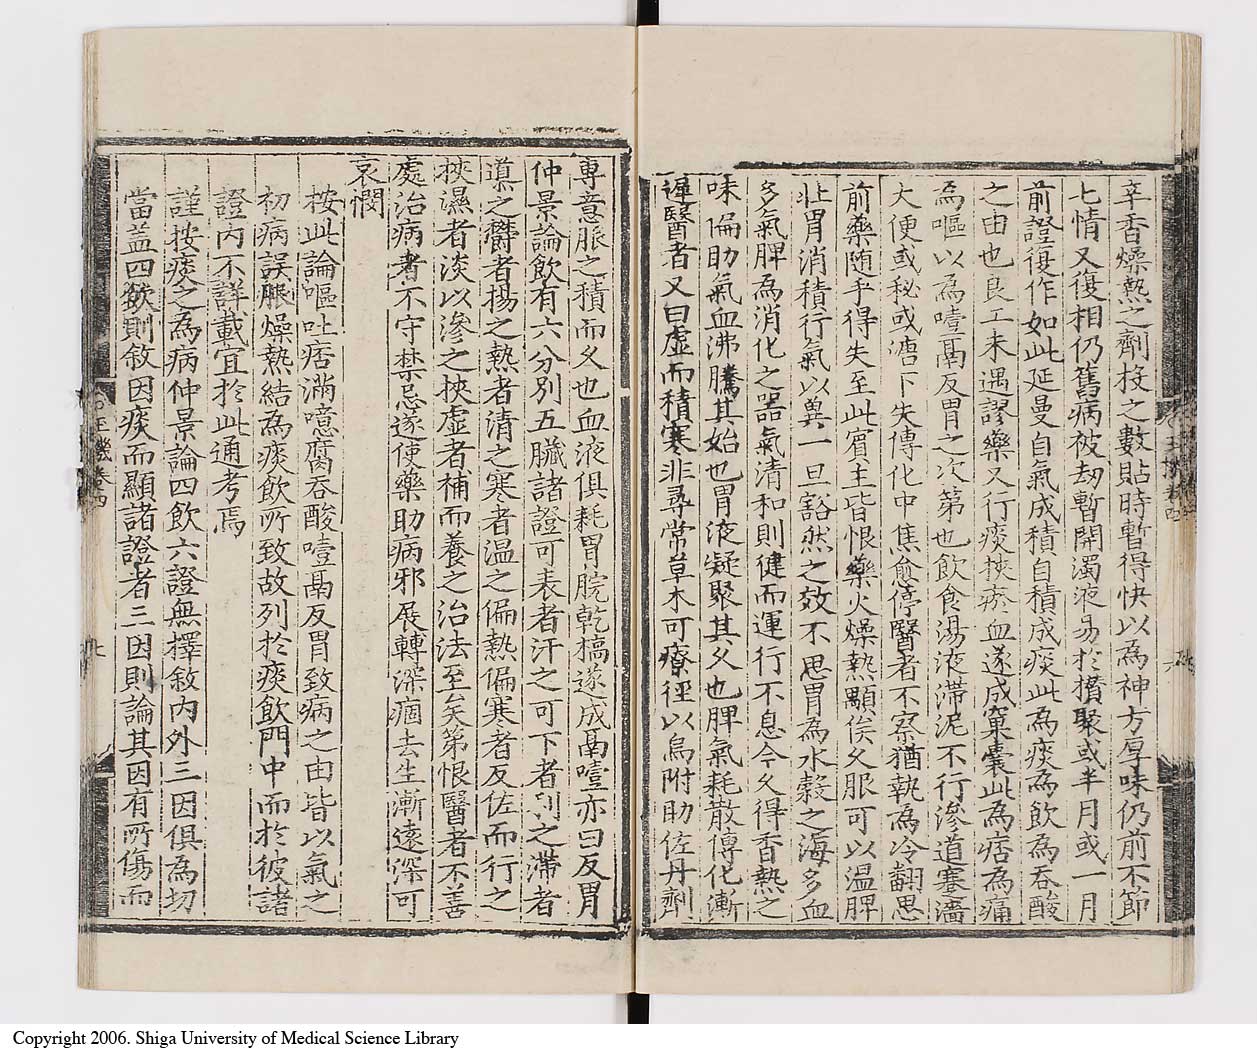 辛香燥熱之劑投之數貼時暫得快以為神方厚味仍前不節
七情又復相仍舊病被刼暫開濁液易於攢聚或半月或一月
前證復作如此延曼自氣成積自積成痰此為痰為飲為呑酸
之由也良工未遇謬藥又行痰挾瘀血遂成窠囊此為痞為痛
為嘔以為噎鬲反胃之次第也飲食湯液滯泥不行滲道塞濇
大便或秘或溏下失傳化中焦愈停醫者不察猶執為冷翻思
前藥随手得失至此賓主皆恨藥欠燥熱顒俟久服可以温脾
壯胃消積行氣以兾一旦豁然之效不思胃為水穀之海多血
多氣脾為消化之噐氣清和則健而運行不息今久得香熱之
味偏助氣血沸騰其始也胃液凝聚其久也脾氣耗散傳化漸
遲醫者又曰虚而積寒非尋常草木可療徑以烏附助佐丹劑
專意服之積而久也血液俱耗胃脘乾槁遂成鬲噎亦曰反胃
仲景論飲有六分别五臟諸證可表者汗之可下者利之滯者
導之欝者揚之熱者清之寒者温之偏熱偏寒者反佐而行之
挾濕者淡以滲之挾虚者補而養之治法至矣第恨醫者不善
處治病者不守禁忌遂使藥助病邪展轉深痼去生漸遠深可
哀憫
按此論嘔吐痞滿噫腐呑酸噎鬲反胃致病之由皆以氣之
初病誤服燥熱結為痰飲所致故列於痰飲門中而於彼諸
證内不詳載宜於此通考焉
謹按痰之為病仲景論四飲六證無擇敘内外三因俱為切
當盖四飲則敘因痰而顯諸證者三因則論其因有所傷而
卷四
七
六
Copyright 2006. Shiga University of Medical Science Library